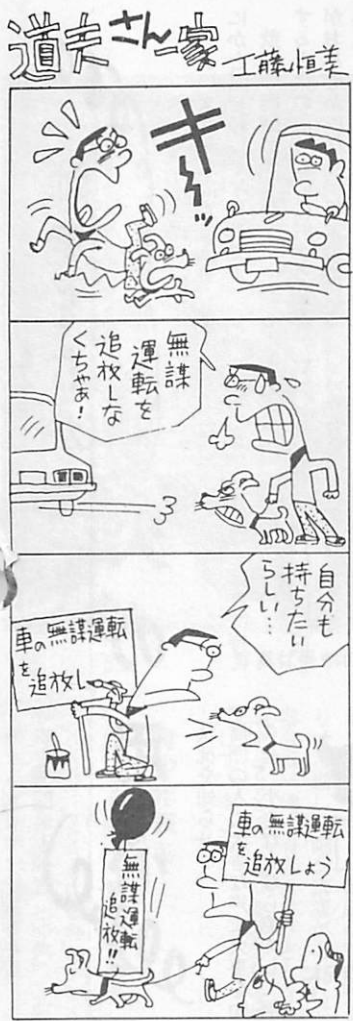 道夫さん一家
工藤恒美
キーッ
無謀
運転を
追放しな
くちゃぁ!
自分も
持ちたい
らしい…
車の無謀運転
を追放し
車の無謀運転
を追放しよう
無謀運転
追放!!